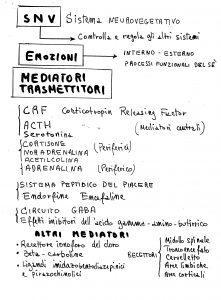 SNV Sistema NEUROVEGETATIVO
controlla e regola gli altri sistemi
EMOZIONI
INTERNO - ESTERNO
PROCESSI FUNZIONALI DEL SÉ
MEDIATORI
TRASMETTITORI
CRF Corticotropin Releasing Factor
ACTH (Mediatori centrali)
Serotonina
CORTISONE (Periferia)
NORADRENALINA
ACETILCOLINA
ADRENALINA (Periferico)
SISTEMA PEPTIDICO DEL PIACERE
Endorfine Encefaline
CIRCUITO GABA
Effetti inibitori dell'acido gamma-amino-butirrico
ALTRI MEDIATORI
Recettore ionoforo del cloro
Beta-carboline
Ligandi imidazobenzodiazepinici
e pirazochinolici
RECETTORI
Midollo spinale
Troncoencefalo
Cervelletto
Aree limbiche
Aree corticali